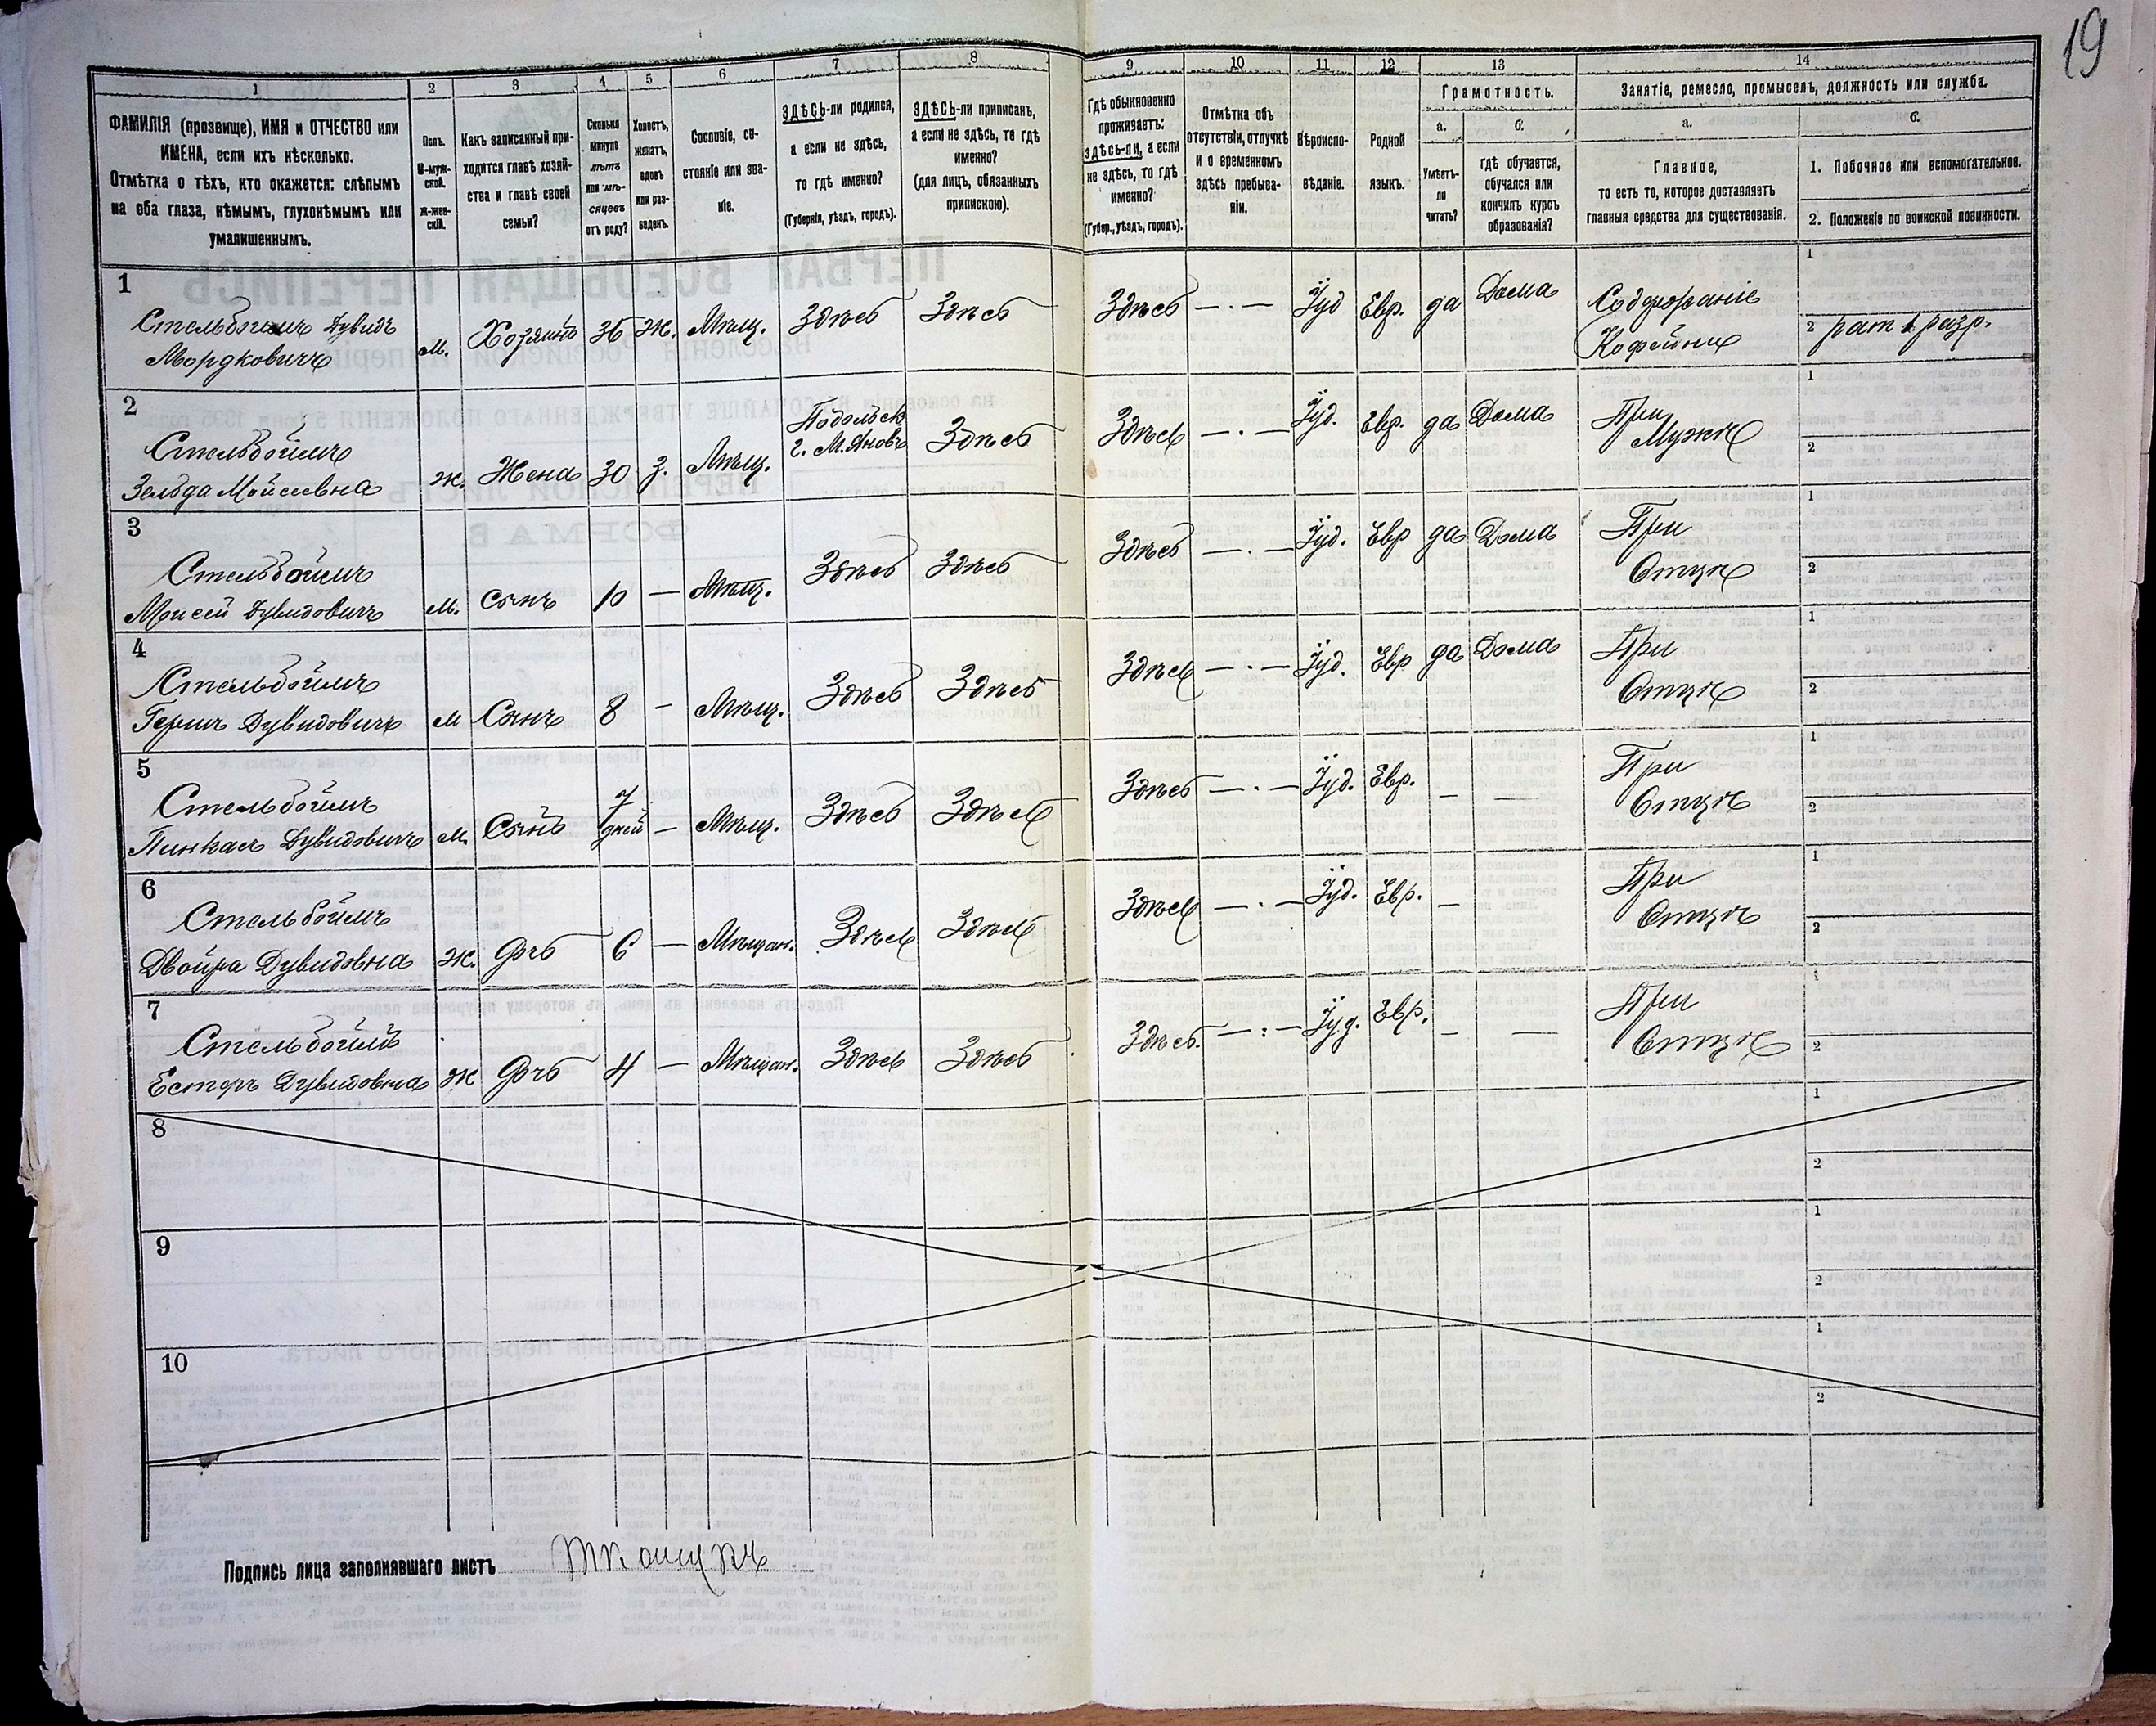 19
1 2 3 4 5 6 7 8 9 10 11 12 13 14
ФАМИЛІЯ (прозвище), ИМЯ и ОТЧЕСТВО или
ИМЕНА, если ихъ нѣсколько.
Отмѣтка о тѣхъ, кто окажется: слѣпымъ
на оба глаза, нѣмымъ, глухонѣмымъ или
умалишеннымъ.
Полъ.
М-муж-
ской.
Ж-жен-
скій.
Какъ записанный при-
ходится главѣ хозяй-
ства и главѣ своей
семьи?
Сколько
минуло
лѣтъ
или мѣ-
сяцевъ
отъ роду?
Холостъ,
женатъ,
вдовъ
или раз-
веденъ.
Сословіе, со-
стояніе или зва-
ніе.
ЗДѢСЬ-ли родился,
а если не здѣсь,
то гдѣ именно?
(Губернія, уѣздъ, городъ).
ЗДѢСЬ-ли приписанъ,
а если не здѣсь, то гдѣ
именно?
(для лицъ, обязанныхъ
припискою).
Гдѣ обыкновенно
проживаетъ:
здѣсь-ли, а если
не здѣсь, то гдѣ
именно?
(Губер., уѣздъ, городъ).
Отмѣтка объ
отсутствіи, отлучкѣ
и о временномъ
здѣсь пребыва-
ніи.
Вѣроиспо-
вѣданіе.
Родной
языкъ.
Грамотность.
а.
Умѣетъ-
ли
читать?
б.
гдѣ обучается,
обучался или
кончилъ курсъ
образованія?
Занятіе, ремесло, промыселъ, должность или служба.
а.
Главное,
то есть то, которое доставляетъ
главныя средства для существованія.
б.
1. Побочное или вспомогательное.
2. Положеніе по воинской повинности.
1
Стельбоимъ Дувидъ
Мордковичъ
м. Хозяинъ 36 ж. Мѣщ. Здѣсь Здѣсь Здѣсь —·— Іуд Евр. да Дома
Содержаніе
Кофейни
1
2 рат 1 разр.
2
Стельбоймъ
Зельда Мойсеевна
ж. Жена 30 з. Мѣщ.
Подольск
г. М. Яновъ
Здѣсь Здѣсь —·— Іуд. Евр. да Дома
При
Мужѣ
1
2
3
Стельбоймъ
Моисей Дувидовичъ
м. Сынъ 10 — Мѣщ. Здѣсь Здѣсь Здѣсь —·— Іуд. Евр да Дома
При
Отцѣ
1
2
4
Стельбоймъ
Гершъ Дувидовичъ
м Сынъ 8 — Мѣщ. Здѣсь Здѣсь Здѣсь —·— Іуд. Евр да Дома
При
Отцѣ
1
2
5
Стельбоймъ
Пинкас Дувидовичъ
м. Сынъ 7 дней — Мѣщ. Здѣсь Здѣсь Здѣсь —·— Іуд. Евр. — —
При
Отцѣ
1
2
6
Стельбоймъ
Двойра Дувидовна
ж. Дочь 6 — Мѣщан. Здѣсь Здѣсь Здѣсь —·— Іуд. Евр. —
При
Отцѣ
1
2
7
Стельбоймъ
Естеръ Дувидовна
ж Дочь 4 — Мѣщан. Здѣсь Здѣсь Здѣсь. —:— Іуд. Евр. — —
При
Отцѣ
1
2
8
1
2
9
1
2
10
1
2
Подпись лица заполнявшаго листъ